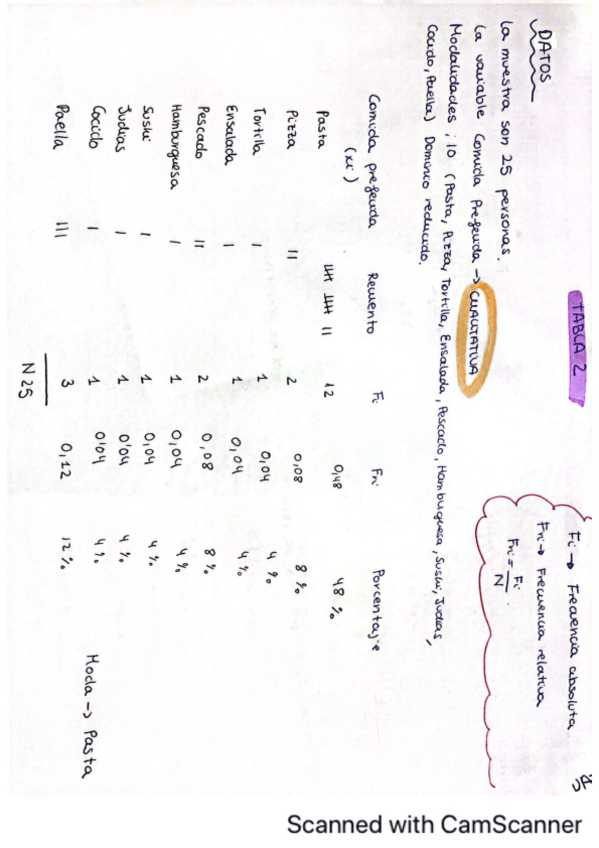 TABLA 2
DATOS
La muestra son 25 personas.
La variable Comida Preferida → CUALITATIVA
Modalidades: 10 (Pasta, Pizza, Tortilla, Ensalada, Pescado, Hamburguesa, Sushi, Judias,
Cocido, Paella) Dominio reducido.
Fi → Frecuencia absoluta
Fri → Frecuencia relativa
Fri = Fi / N
Comida preferida (xi) Recuento Fi Fri Porcentaje
Pasta 12 0,48 48 %
Pizza II 2 0,08 8 %
Tortilla I 1 0,04 4 %
Ensalada I 1 0,04 4 %
Pescado II 2 0,08 8 %
Hamburguesa I 1 0,04 4 %
Sushi I 1 0,04 4 %
Judias I 1 0'04 4 %
Cocido I 1 0'04 4 %
Paella III 3 0,12 12 %
N 25
Moda → Pasta
Scanned with CamScanner